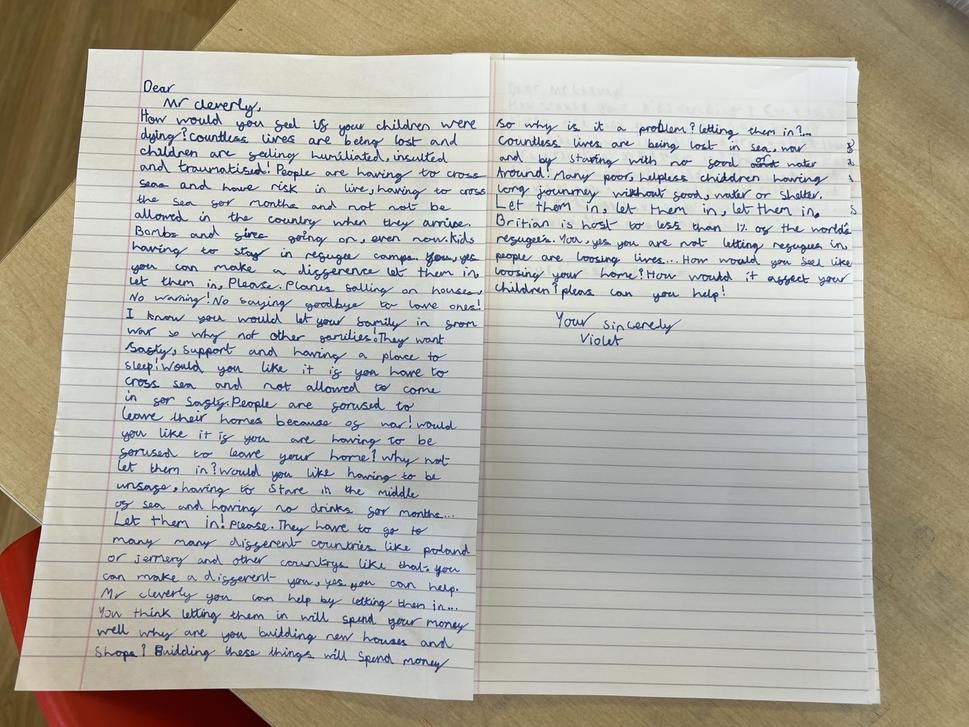 Dear
Mr cleverly,
How would you feel if your children were
dying? countless lives are being lost and
children are feeling humiliated, insulted
and traumatised! People are having to cross
seas and have risk in live, having to cross
the sea for months and not not be
allowed in the country when they arrive.
Bombs and fires going on, even now. Kids
having to stay in refugee camps. You, yes
you can make a difference let them in,
let them in, Please. Planes falling on houses,
No warning! No saying goodbye to love ones!
I know you would let your family in from
war so why not other families! They want
safty, support and having a place to
sleep! Would you like it if you have to
cross sea and not allowed to come
in for safty. People are forused to
leave their homes because of war! would
you like it if you are having to be
forused to leave your home? why not
let them in? Would you like having to be
unsafe, having to stare in the middle
of sea and having no drinks for months...
Let them in! Please. They have to go to
many many different countries like poland
or jermery and other countrys like that. you
can make a different you, yes you can help.
Mr cleverly you can help by letting them in...
You think letting them in will spend your money
well why are you building new houses and
shops? Building these things will spend money
so why is it a problem? letting them in?...
Countless lives are being lost in sea, war
and by starfing with no food or water
Around! Many poor, helpless children having
long jounrney without food, water or shelter.
Let them in, let them in, let them in,
Britian is host to less than 1% of the world's
refugee's. You, yes you are not letting refugees in,
people are loosing lives... How would you feel like
loosing your home? How would it affect your
children? pleas can you help!
Your sincerely
Violet